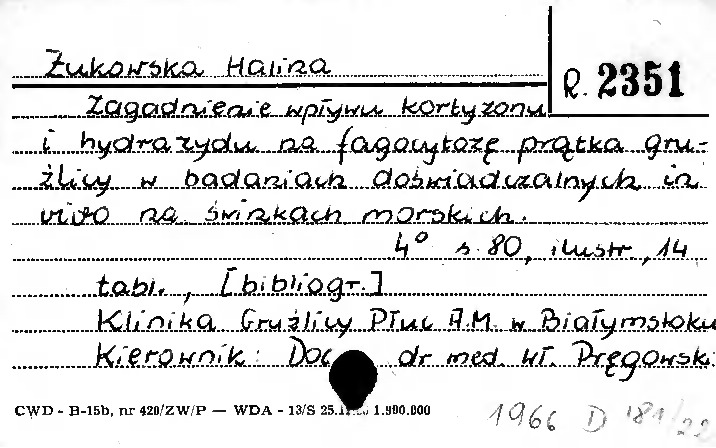 Żukowska Halina
R. 2351
Zagadnienie wpływu kortyzonu
i hydrazydu na fagocytozę prątka gru-
źlicy w badaniach doświadczalnych in
vivo na świnkach morskich.
4° s. 80, ilustr., 14
tabl., [bibliogr.]
Klinika Gruźlicy Płuc A.M. w Białymstoku
Kierownik: Doc dr med. Wł. Pręgowski
CWD - B-15b, nr 420/ZW/P — WDA - 13/S 25. 1.990.000
1966 D 181/22